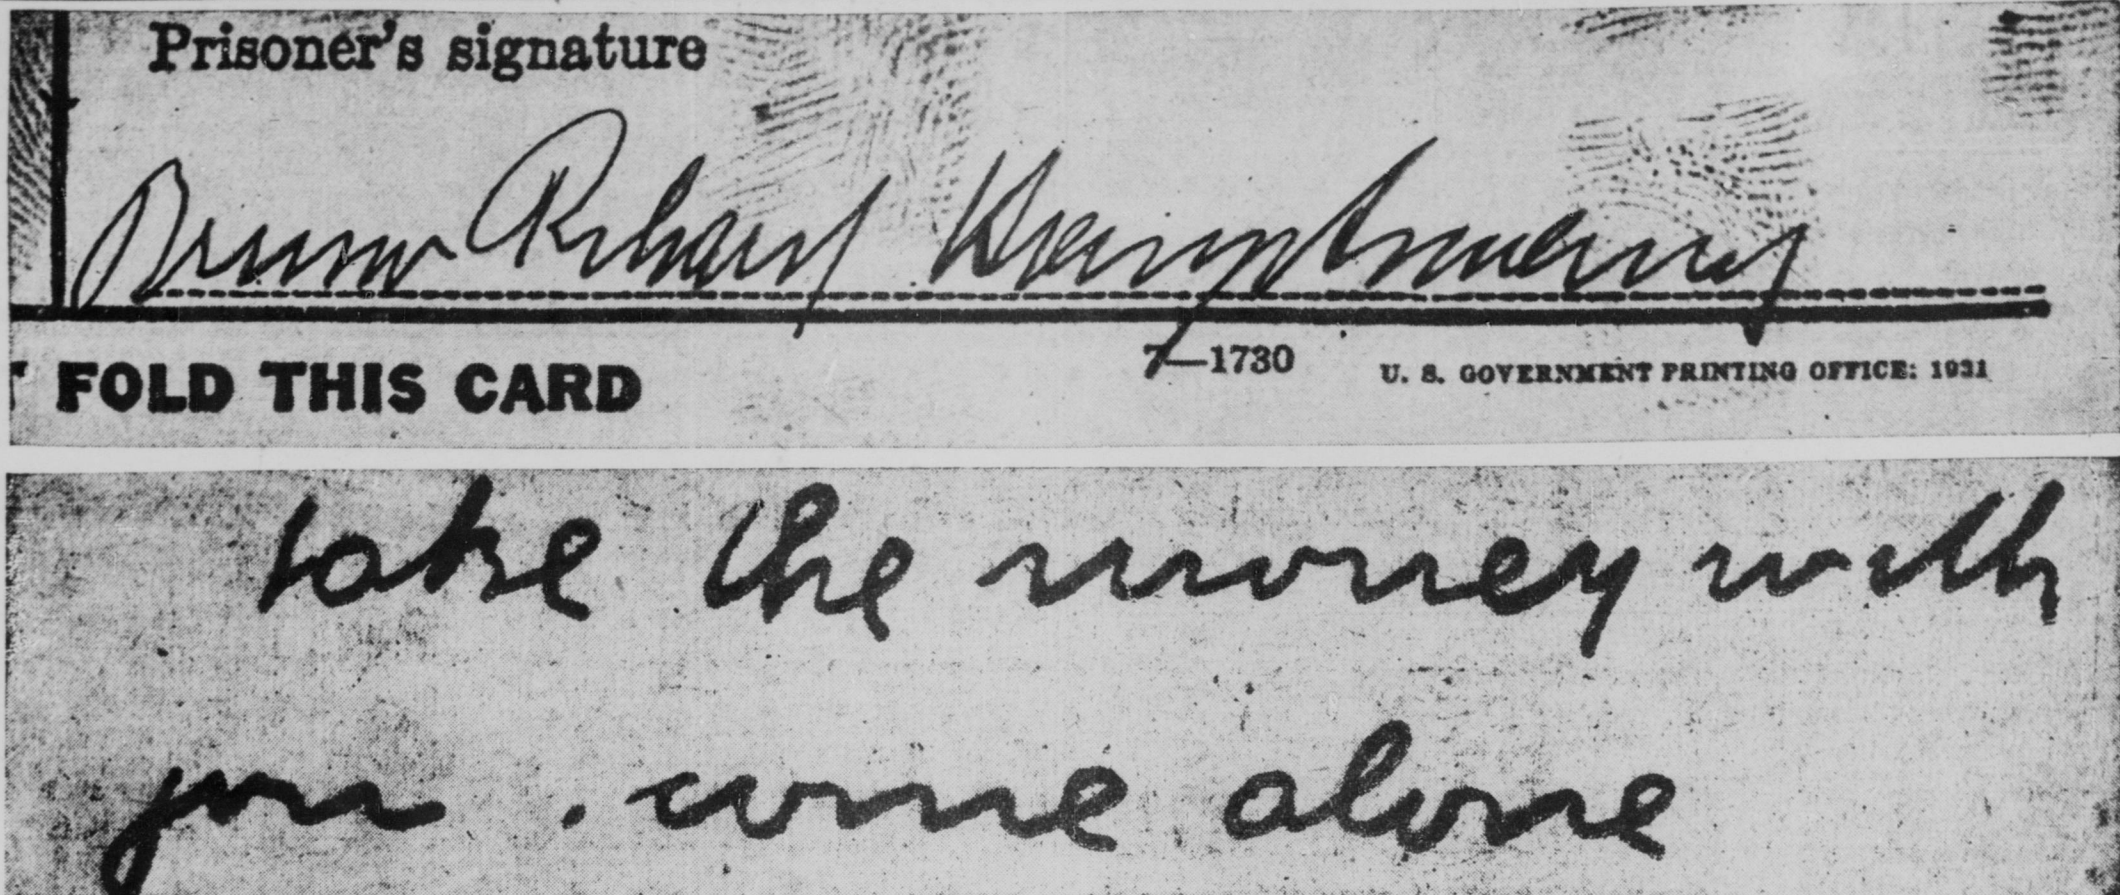 Prisoner's signature
Bruno Richard Hauptmann
FOLD THIS CARD
7—1730
U. S. GOVERNMENT PRINTING OFFICE: 1931
take the money with
you . come alone